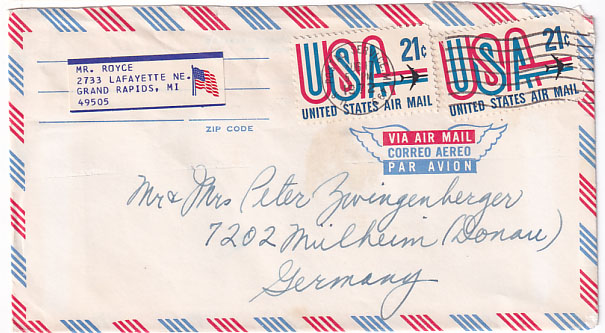 MR. ROYCE
2733 LAFAYETTE NE.
GRAND RAPIDS, MI
49505
ZIP CODE
USA 21¢
UNITED STATES AIR MAIL
USA 21¢
UNITED STATES AIR MAIL
VIA AIR MAIL
CORREO AEREO
PAR AVION
Mr & Mrs Peter Zwingenberger
7202 Mülheim (Donau)
Germany